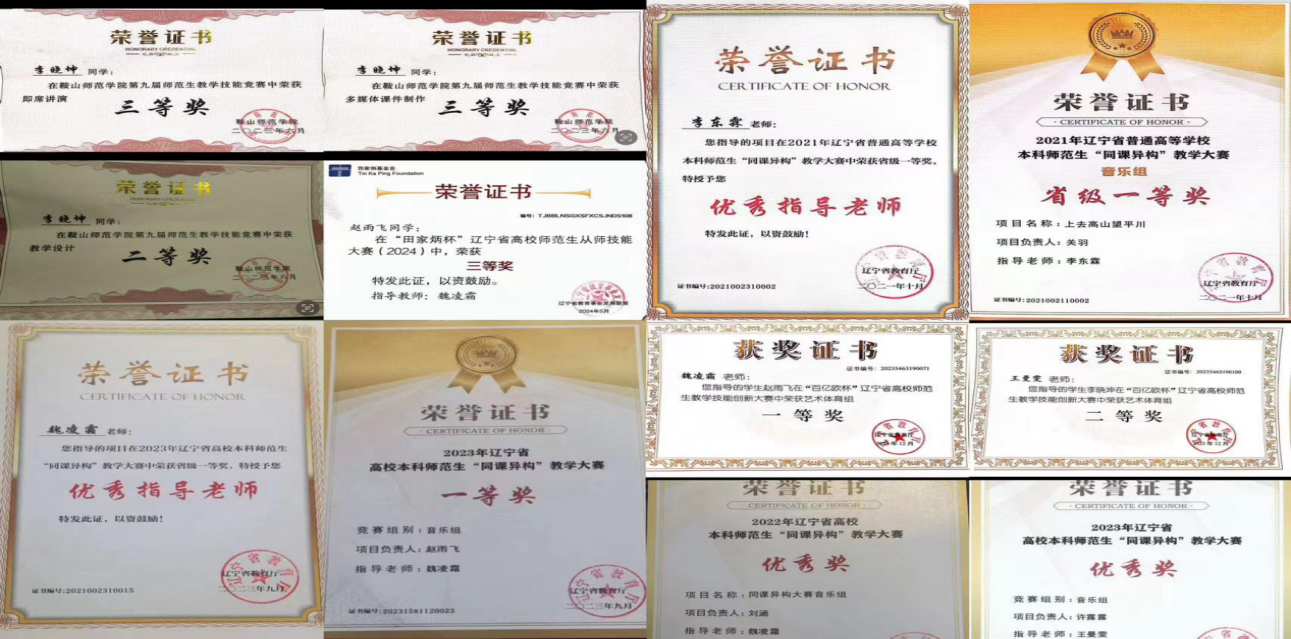 荣誉证书
HONORARY CREDENTIAL
李晓坤 同学：
在鞍山师范学院第九届师范生教学技能竞赛中荣获
即席讲演
三等奖
鞍山师范学院
二〇二三年六月
荣誉证书
HONORARY CREDENTIAL
李晓坤 同学：
在鞍山师范学院第九届师范生教学技能竞赛中荣获
多媒体课件制作
三等奖
鞍山师范学院
二〇二三年六月
荣誉证书
CERTIFICATE OF HONOR
李东霖 老师：
您指导的项目在2021年辽宁省普通高等学校
本科师范生“同课异构”教学大赛中荣获省级一等奖，
特授予您
优秀指导老师
特发此证，以资鼓励！
辽宁省教育厅
二〇二一年十月
证书编号：2021002310002
荣誉证书
CERTIFICATE OF HONOR
2021年辽宁省普通高等学校
本科师范生“同课异构”教学大赛
音乐组
省级一等奖
项目名称：上去高山望平川
项目负责人：关羽
指导老师：李东霖
辽宁省教育厅
二〇二一年十月
证书编号：2021002110002
荣誉证书
李晓坤 同学：
在鞍山师范学院第九届师范生教学技能竞赛中荣获
教学设计
二等奖
鞍山师范学院
二〇二三年六月
田家炳基金会
Tin Ka Ping Foundation
荣誉证书
编号：TJBBLNSGXSFXCSJNDS108
赵雨飞同学：
在“田家炳杯”辽宁省高校师范生从师技能
大赛（2024）中，荣获
三等奖
特发此证，以资鼓励。
指导教师：魏凌霜
2024年5月
荣誉证书
CERTIFICATE OF HONOR
魏凌霜 老师：
您指导的项目在2023年辽宁省高校本科师范生
“同课异构”教学大赛中荣获省级一等奖，特授予您
优秀指导老师
特发此证，以资鼓励！
辽宁省教育厅
二〇二三年九月
证书编号：2021002310015
荣誉证书
CERTIFICATE OF HONOR
2023年辽宁省
高校本科师范生“同课异构”教学大赛
一等奖
竞赛组别：音乐组
项目负责人：赵雨飞
指导老师：魏凌霜
辽宁省教育厅
二〇二三年九月
证书编号：20231581120023
获奖证书
证书编号：20235463190071
魏凌霜 老师：
您指导的学生赵雨飞在“百亿欧杯”辽宁省高校师范
生教学技能创新大赛中荣获艺术体育组
一等奖
获奖证书
证书编号：20235463190100
王曼雯 老师：
您指导的学生李晓坤在“百亿欧杯”辽宁省高校师范
生教学技能创新大赛中荣获艺术体育组
二等奖
荣誉证书
CERTIFICATE OF HONOR
2022年辽宁省高校
本科师范生“同课异构”教学大赛
优秀奖
项目名称：同课异构大赛音乐组
项目负责人：刘涵
指导老师：魏凌霜
荣誉证书
CERTIFICATE OF HONOR
2023年辽宁省
高校本科师范生“同课异构”教学大赛
优秀奖
竞赛组别：音乐组
项目负责人：许露露
指导老师：王曼雯